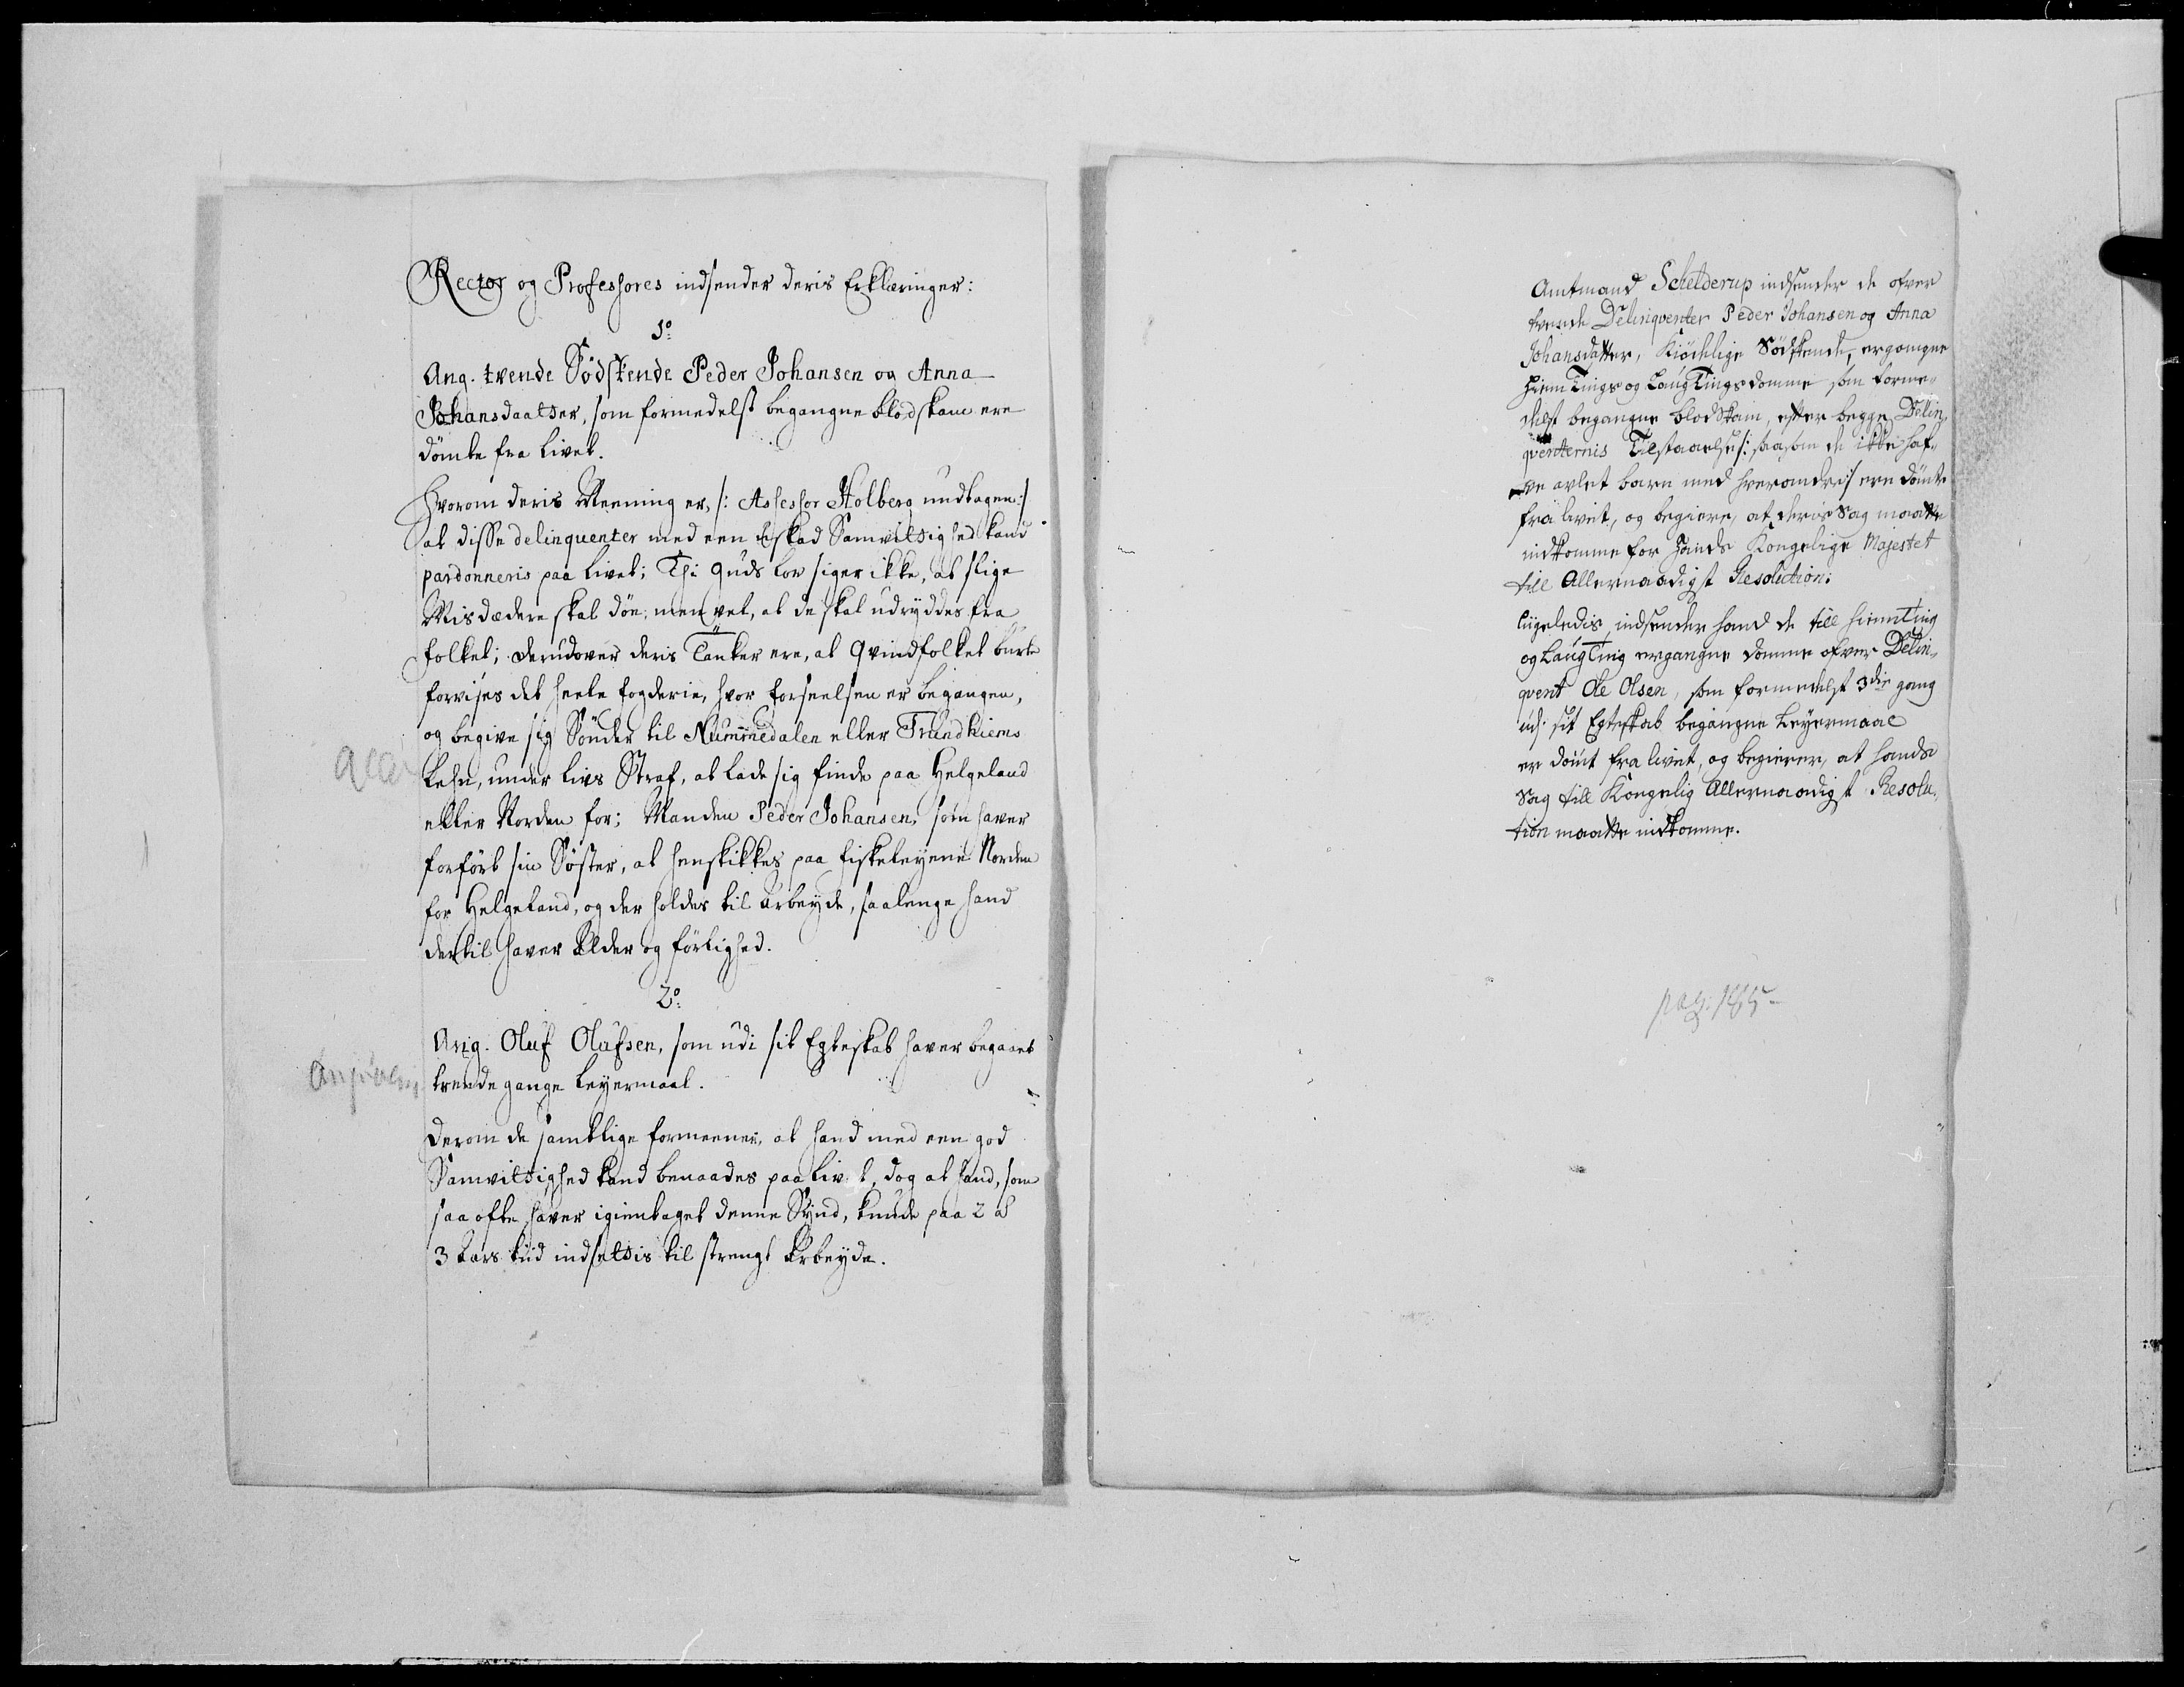 Rector og Professores indsender deris Erklæringer:
1o
Ang. tvende Södskende Peder Johansen og Anna
Johansdaatter, som formedelst begangne blodskam ere
dömte fra livet.
Hvorom deris Meening er, /: Assessor Holberg undtagen:/
at disse delinquenter med een uskad Samvittighed kand
pardonneris paa livet; Thi Guds lov siger ikke, at slige
Misdædere skal döe; men vel, at de skal udryddes fra
folket; derudover deris Tanker ere, at Qvindfolket burte
forvises det heele fogderie, hvor forseelsen er begangen,
og begive sig Sönder til Nummedalen eller Trundhiems
Lehn, under livs Straf, at lade sig finde paa Helgeland
eller Norden for; Manden Peder Johansen, som haver
forfört sin Söster, at henskikkes paa fiskeleyene Norden
for Helgeland, og der holdes til Arbeyde, saalenge hand
dertil haver Alder og förlighed.
2o
Ang. Oluf Olufsen, som udi sit Egteskab haver begaaet
trende gange leyermaal.
Derom de samtlige formeener, at hand med een god
Samvittighed kand benaades paa livet, dog at hand, som
saa ofte haver igientaget denne Synd, kunde paa 2 a
3 Aars tiid indsettis til strengt Arbeyde.
Amtmand Schelderup indsender de ofver
tvende Delinqventer Peder Johansen og Anna
Johansdatter, Kiödelige Södskende, ergangne
Hiem Tings og Laug Tings domme som forme-
delst begangne blodskam, efter begge Delin-
qventernis Tilstaaelse /: saasom de ikke haf-
ve avlet barn med hverandre :/ ere dömte
fra livet, og begiere, at deris Sag maatte
indkomme for Hands Kongelige Majestet
till Allernaadigst Resolution;
ligeledis, indsender hand de till HiemTing
og LaugTing ergangne domme ofver Delin-
qvent Ole Olsen, som formedelst 3die gang
udj sit Egteskab begangne Leyermaal
er dömt fra livet, og begierer, at hands
Sag till Kongelig Allernaadigst Resolu-
tion maatte indkomme.
pag: 185